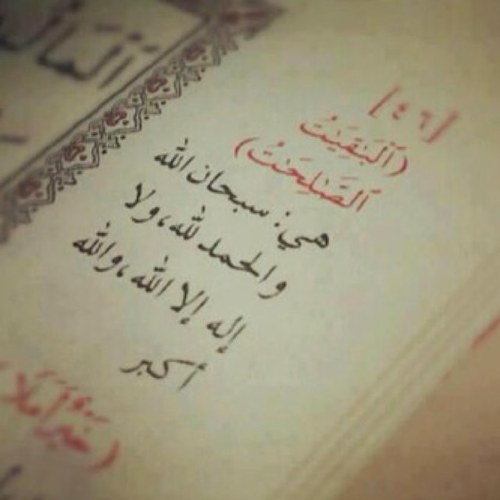 المال
[٤٦]
(ٱلْبَٰقِيَٰتُ
ٱلصَّٰلِحَٰتُ)
هي: سبحان الله
والحمد لله، ولا
إله إلا الله، والله
أكبر
(خَيْرٌ أَمَلًا